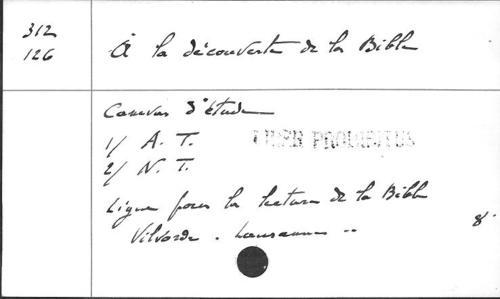 312
126
À la découverte de la Bible
Canevas d'étude
1/ A. T.
LIBER PROHIBITUS
2/ N. T.
Ligue pour la lecture de la Bible
Vilvorde . Lausanne ..
8°